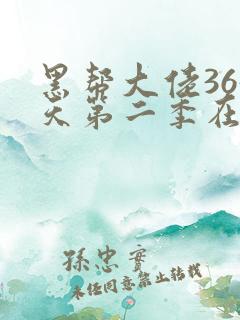 黑帮大佬36
天第二季在
孫忠實
未经同意禁止转载